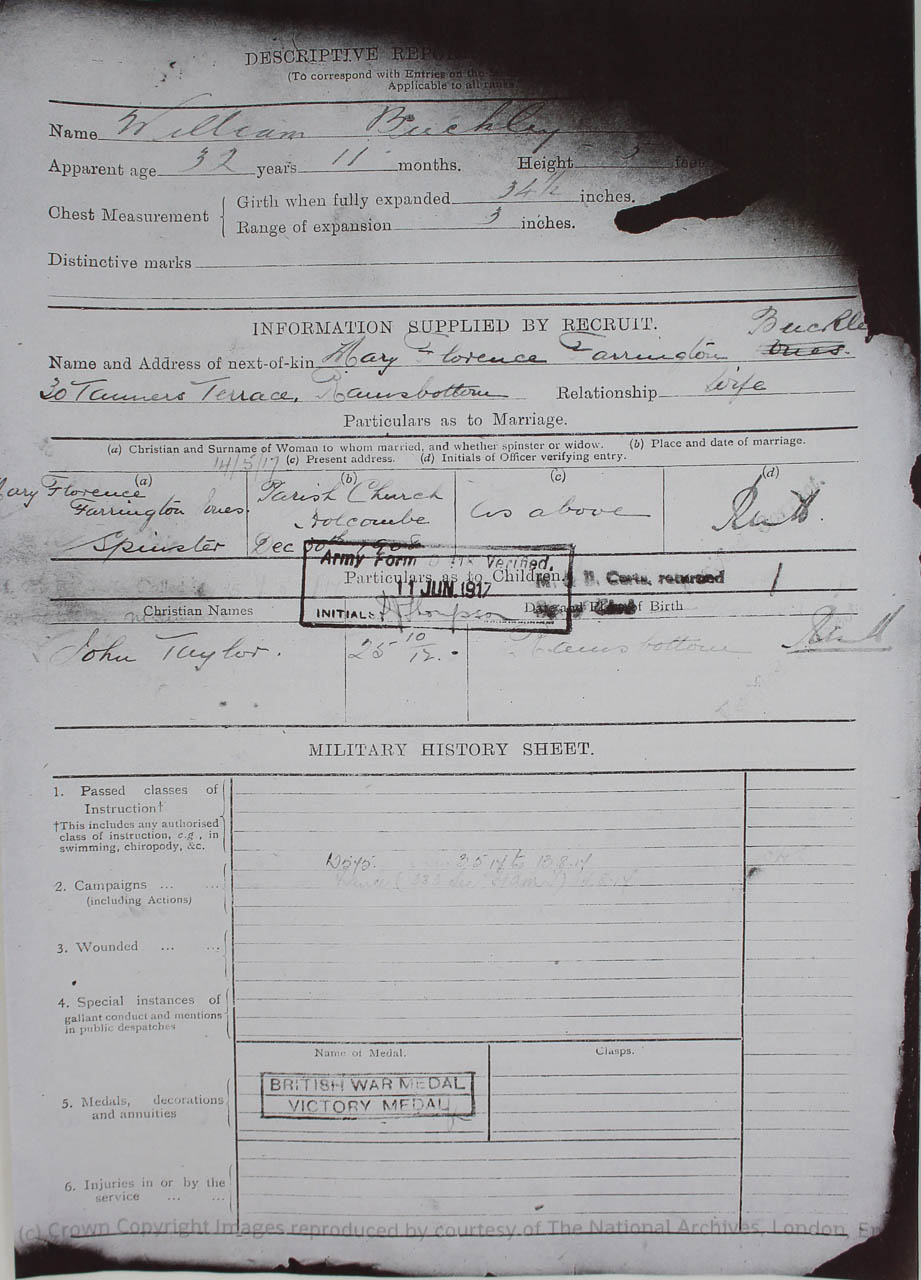 DESCRIPTIVE REPO
(To correspond with Entries on the
Applicable to all ranks
Name William Buckley
Apparent age 32 years 11 months. Height 5 feet
Chest Measurement
Girth when fully expanded 34½ inches.
Range of expansion 3 inches.
Distinctive marks
INFORMATION SUPPLIED BY RECRUIT.
Buckle
Name and Address of next-of-kin Mary Florence Farrington
30 Tanners Terrace, Ramsbottom Relationship wife
Particulars as to Marriage.
(a) Christian and Surname of Woman to whom married, and whether spinster or widow. (b) Place and date of marriage.
14/5/17 (c) Present address. (d) Initials of Officer verifying entry.
(a) (b) (c) (d)
ary Florence Parish Church
Farrington Holcombe As above
Spinster Dec
Army Form Verified.
Particulars as to Children
11 JUN. 1917 Certs. returned
Christian Names INITIALS Thompson Date and Place of Birth
John Taylor. 25 10/12. Ramsbottom
MILITARY HISTORY SHEET.
1. Passed classes of
Instruction†
†This includes any authorised
class of instruction, e.g., in
swimming, chiropody, &c.
2. Campaigns ... ...
(including Actions)
3. Wounded ... ...
4. Special instances of
gallant conduct and mentions
in public despatches
Name of Medal. Clasps.
BRITISH WAR MEDAL
VICTORY MEDAL
5. Medals, decorations
and annuities
6. Injuries in or by the
service ... ...
(c) Crown Copyright Images reproduced by courtesy of The National Archives, London, En